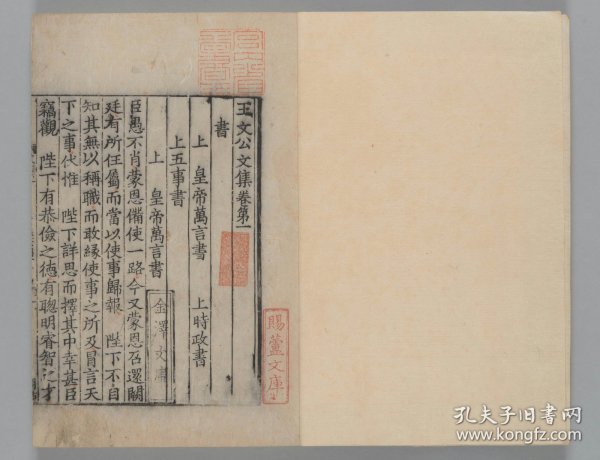 王文公文集卷第一
書
上 皇帝萬言書 上時政書
上五事書
上 皇帝萬言書
臣愚不肖蒙恩備使一路今又蒙恩召還闕
廷有所任屬而當以使事歸報 陛下不自
知其無以稱職而敢緣使事之所及冒言天
下之事伏惟 陛下詳思而擇其中幸甚臣
竊觀 陛下有恭儉之德有聰明睿智之才
金澤文庫
賜蘆文庫
孔夫子旧书网
www.kongfz.com